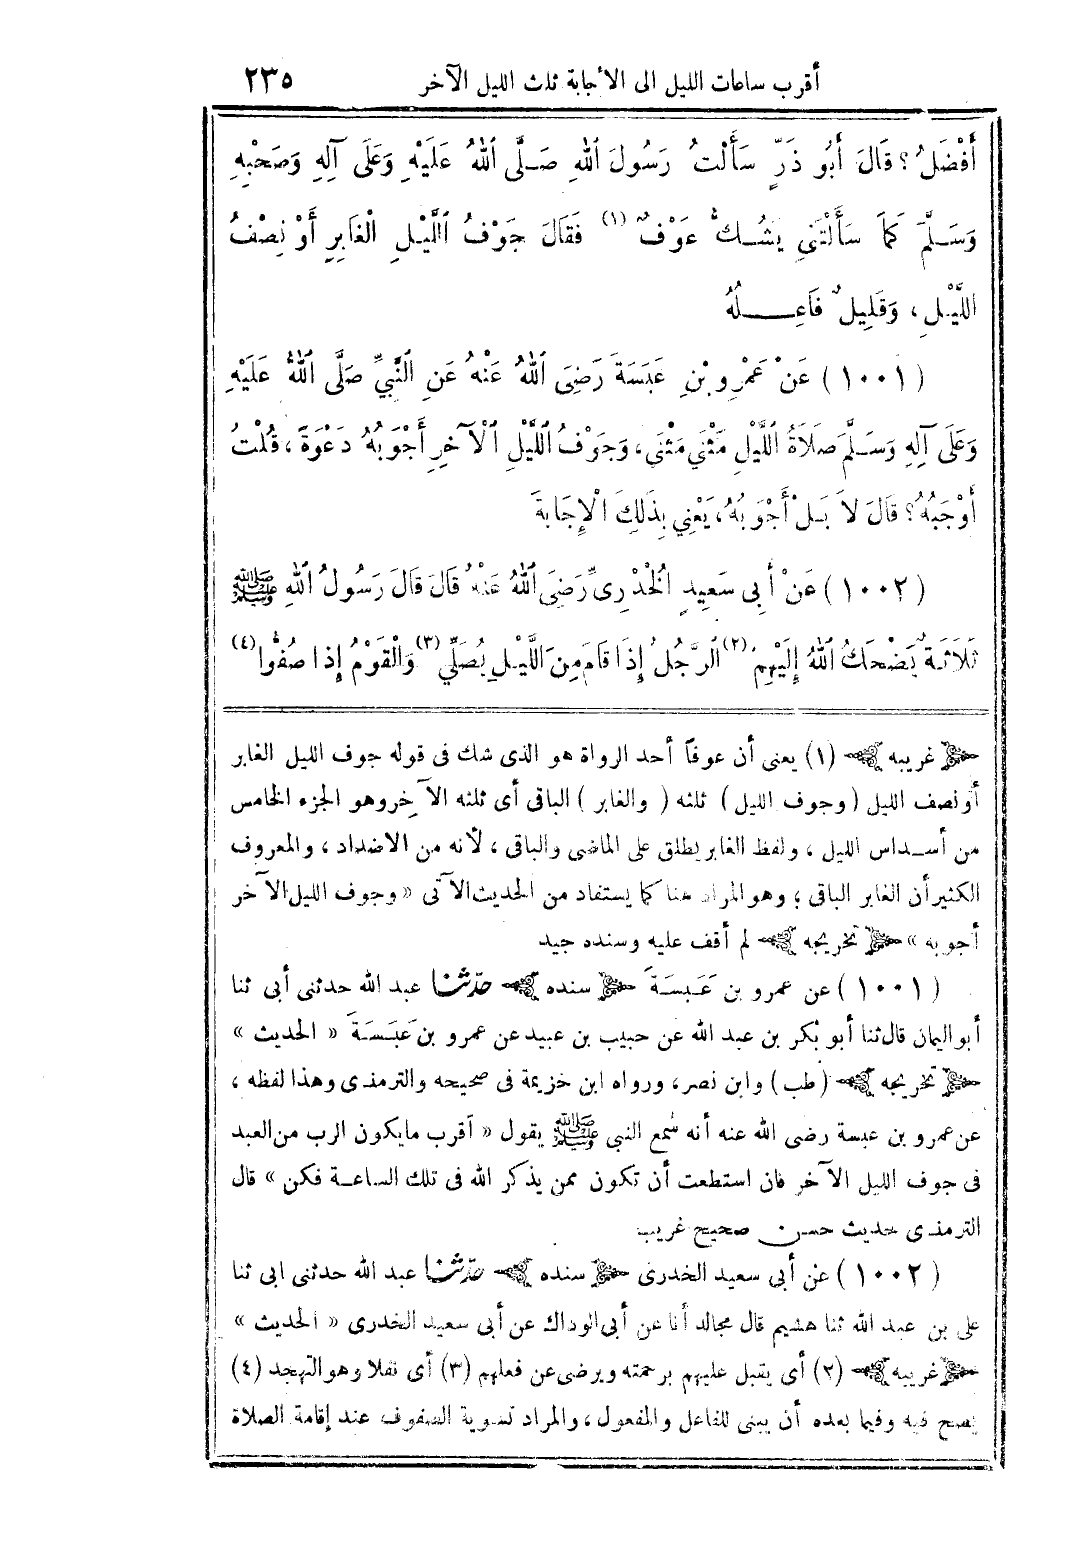 أقرب ساعات الليل الى الأجابة ثلث الليل الآخر ٢٣٥
أَفْضَلُ؟ قَالَ أَبُو ذَرٍّ سَأَلْتُ رَسُولَ اللهِ صَلَّى اللهُ عَلَيْهِ وَعَلَى آلِهِ وَصَحْبِهِ
وَسَلَّمَ كَمَا سَأَلْتَنِي يَشُكُّ عَوْفٌ (١) فَقَالَ جَوْفُ اللَّيْلِ الْغَابِرِ أَوْ نِصْفُ
اللَّيْلِ، وَقَلِيلٌ فَاعِلُهُ
(١٠٠١) عَنْ عَمْرِو بْنِ عَبَسَةَ رَضِيَ اللهُ عَنْهُ عَنِ النَّبِيِّ صَلَّى اللهُ عَلَيْهِ
وَعَلَى آلِهِ وَسَلَّمَ صَلَاةُ اللَّيْلِ مَثْنَى مَثْنَى، وَجَوْفُ اللَّيْلِ الْآخِرِ أَجْوَبُهُ دَعْوَةً، قُلْتُ
أَوْجَبُهُ؟ قَالَ لَا بَلْ أَجْوَبُهُ، يَعْنِي بِذَلِكَ الْإِجَابَةَ
(١٠٠٢) عَنْ أَبِي سَعِيدٍ الْخُدْرِيِّ رَضِيَ اللهُ عَنْهُ قَالَ قَالَ رَسُولُ اللهِ ﷺ
ثَلَاثَةٌ يَضْحَكُ اللهُ إِلَيْهِمْ (٢) الرَّجُلُ إِذَا قَامَ مِنَ اللَّيْلِ يُصَلِّي (٣) وَالْقَوْمُ إِذَا صُفُّوا (٤)
﴿غريبه﴾ (١) يعنى أن عوفاً أحد الرواة هو الذى شك فى قوله جوف الليل الغابر
أو نصف الليل (وجوف الليل) ثلثه (والغابر) الباقى أى ثلثه الآخر وهو الجزء الخامس
من أسداس الليل، ولفظ الغابر يطلق على الماضى والباقى، لأنه من الاضداد، والمعروف
الكثير أن الغابر الباقى؛ وهو المراد هنا كما يستفاد من الحديث الآتى «وجوف الليل الآخر
أجوبه» ﴿تخريجه﴾ لم أقف عليه وسنده جيد
(١٠٠١) عن عمرو بن عَبَسَةَ ﴿سنده﴾ حدّثنا عبد الله حدثنى أبى ثنا
أبو اليمان قال ثنا أبو بكر بن عبد الله عن حبيب بن عبيد عن عمرو بن عَبَسَةَ «الحديث»
﴿تخريجه﴾ (طب) وابن نصر، ورواه ابن خزيمة فى صحيحه والترمذى وهذا لفظه،
عن عمرو بن عبسة رضى الله عنه أنه سمع النبي ﷺ يقول «أقرب ما يكون الرب من العبد
فى جوف الليل الآخر فان استطعت أن تكون ممن يذكر الله فى تلك الساعة فكن» قال
الترمذى حديث حسن صحيح غريب
(١٠٠٢) عن أبى سعيد الخدرى ﴿سنده﴾ حدّثنا عبد الله حدثنى ابى ثنا
على بن عبد الله ثنا هشيم قال مجالد أنا عن أبى الوداك عن أبى سعيد الخدرى «الحديث»
﴿غريبه﴾ (٢) أى يقبل عليهم برحمته ويرضى عن فعلهم (٣) أى نفلا وهو التهجد (٤)
يصح فيه وفيما بعده أن يبنى للفاعل والمفعول، والمراد تسوية الصفوف عند إقامة الصلاة